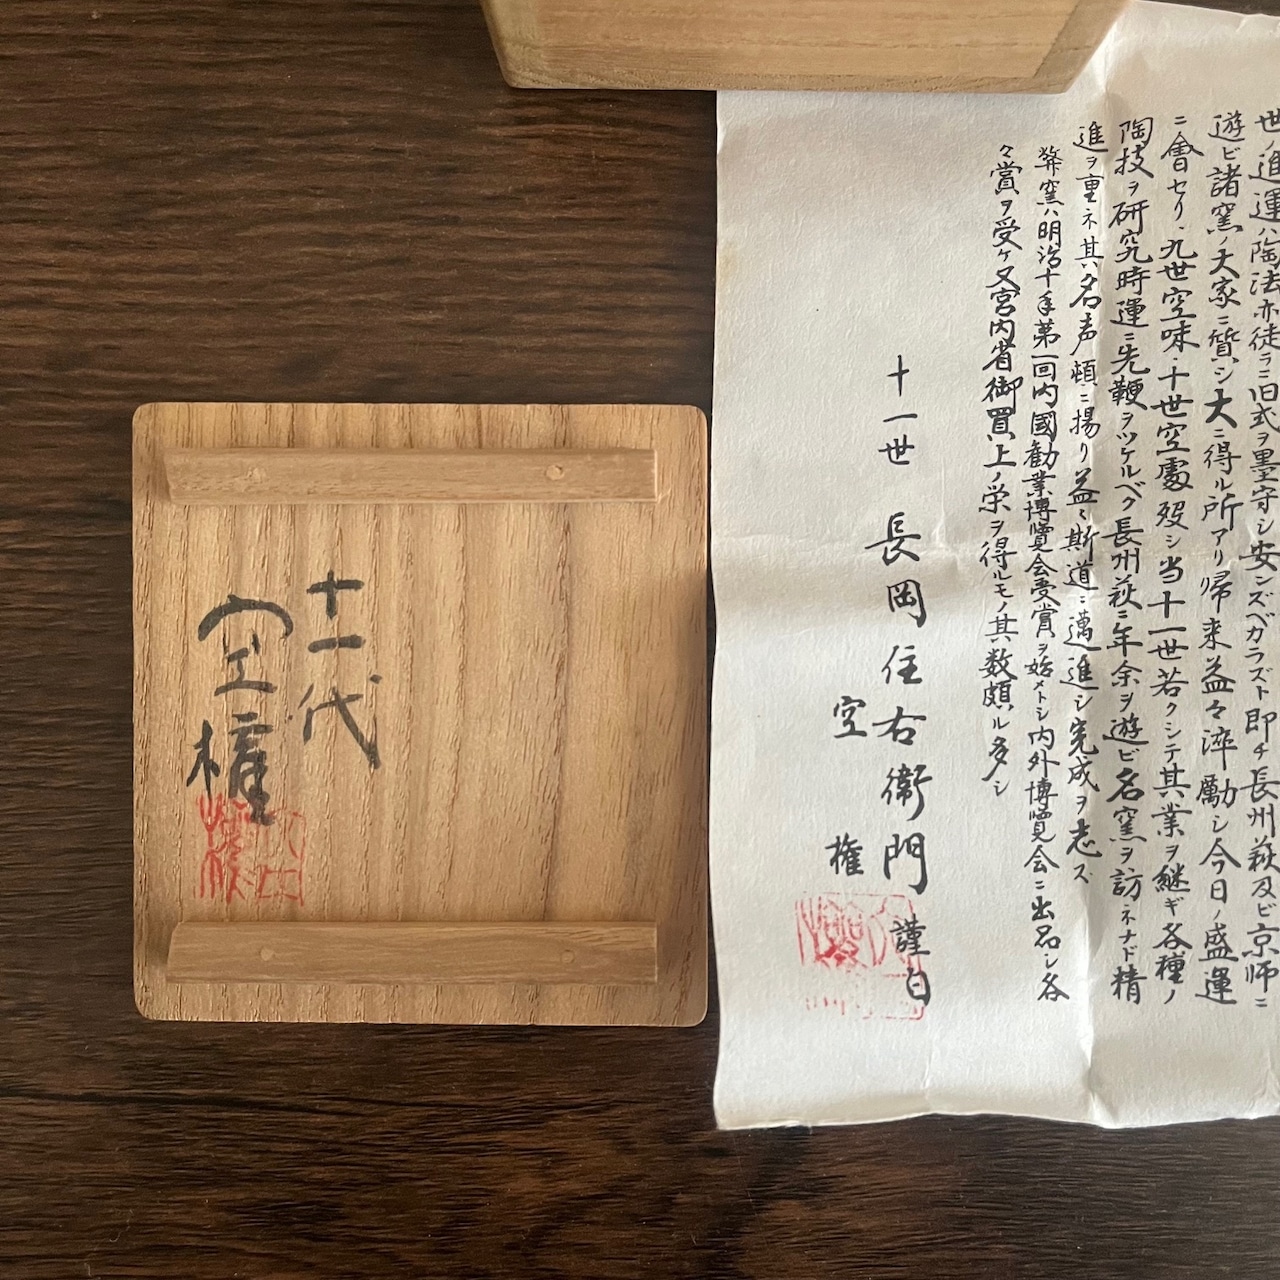 世ノ進運ハ陶法亦徒ラニ旧式ヲ墨守シ安ンズベカラズト即チ長州萩及ビ京師ニ
遊ビ諸窯ノ大家ニ質シ大ニ得ル所アリ帰来益々淬励シ今日ノ盛運
ニ會セリ、九世空味・十世空處歿シ当十一世若クシテ其業ヲ継ギ各種ノ
陶技ヲ研究時運ニ先鞭ヲツケルベク長州萩ニ年余ヲ遊ビ名窯ヲ訪ネナド精
進ヲ重ネ其ハ名声頓ニ揚リ益々斯道ニ邁進シ完成ヲ志ス
弊窯ハ明治十年第一回内國勧業博覽会受賞ヲ始メトシ内外博覽会ニ出品シ各
々賞ヲ受ケ又宮内省御買上ノ栄ヲ得ルモノ其数頗ル多シ
十一世 長岡住右衛門 謹白
空権
十一代
空権